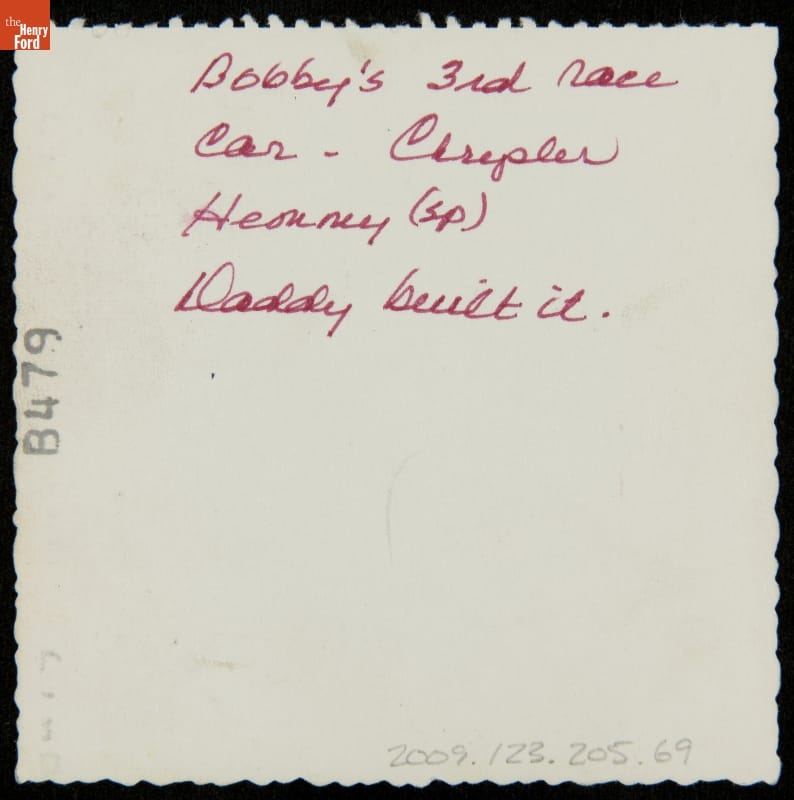 the
Henry
Ford
Bobby's 3rd race
car - Chrysler
Hemmey (sp)
Daddy built it.
B479
2009.123.205.69